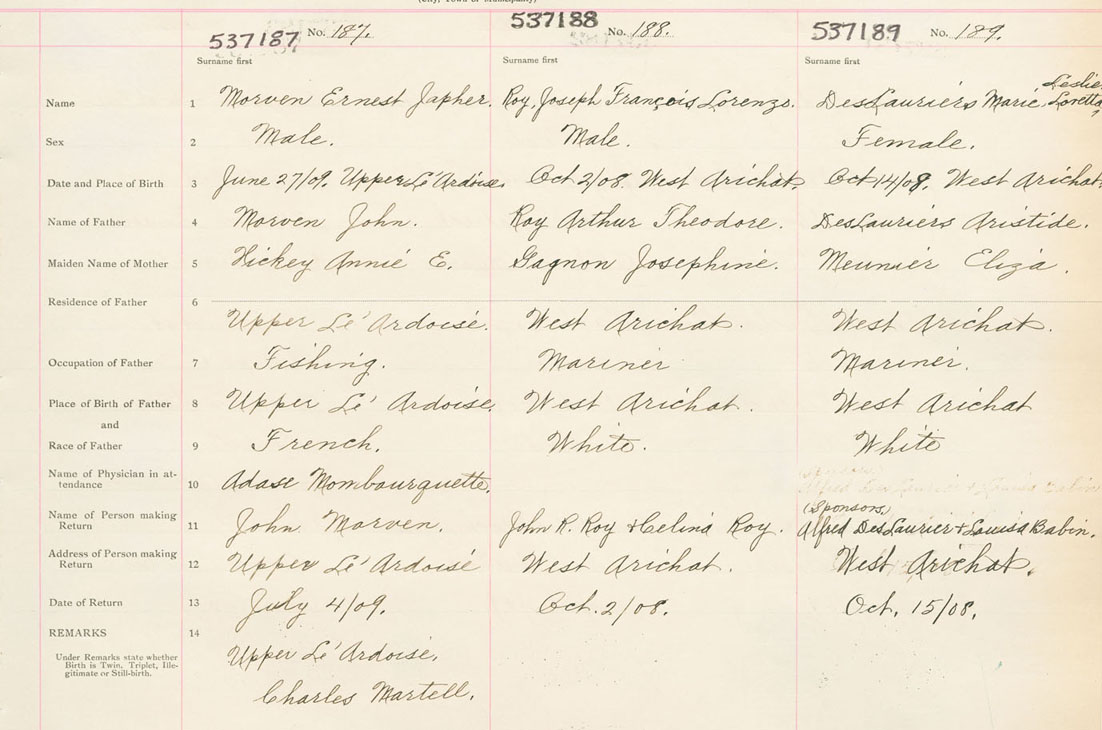 (City, Town or Municipality)
537187 No. 187. 537188 No. 188. 537189 No. 189.
Surname first Surname first Surname first
Name 1 Morven Ernest Japher. Roy, Joseph François Lorenzo. DesLauriers Marie Leslie Loretta,
Sex 2 Male. Male. Female.
Date and Place of Birth 3 June 27/09. Upper Lé Ardoise. Oct 2/08. West Arichat. Oct 14/08. West Arichat.
Name of Father 4 Morven John. Roy Arthur Theodore. DesLauriers Aristide.
Maiden Name of Mother 5 Hickey Annié E. Gagnon Josephine. Meunier Eliza.
Residence of Father 6
Upper Lé Ardoisé. West Arichat. West Arichat.
Occupation of Father 7 Fishing. Mariner Mariner.
Place of Birth of Father 8 Upper Lé Ardoise. West Arichat. West Arichat
and
Race of Father 9 French. White. White
Name of Physician in at-
tendance 10 Adase Mombourquette.
(Sponsors)
Name of Person making
Return 11 John Morven. John R. Roy & Celina Roy. Alfred DesLaurier & Louisa Babin.
Address of Person making
Return 12 Upper Lé Ardoisé West Arichat. West Arichat.
Date of Return 13 July 4/09. Oct. 2/08. Oct. 15/08.
REMARKS 14
Under Remarks state whether
Birth is Twin, Triplet, Ille-
gitimate or Still-birth.
Upper Lé Ardoisé.
Charles Martell.